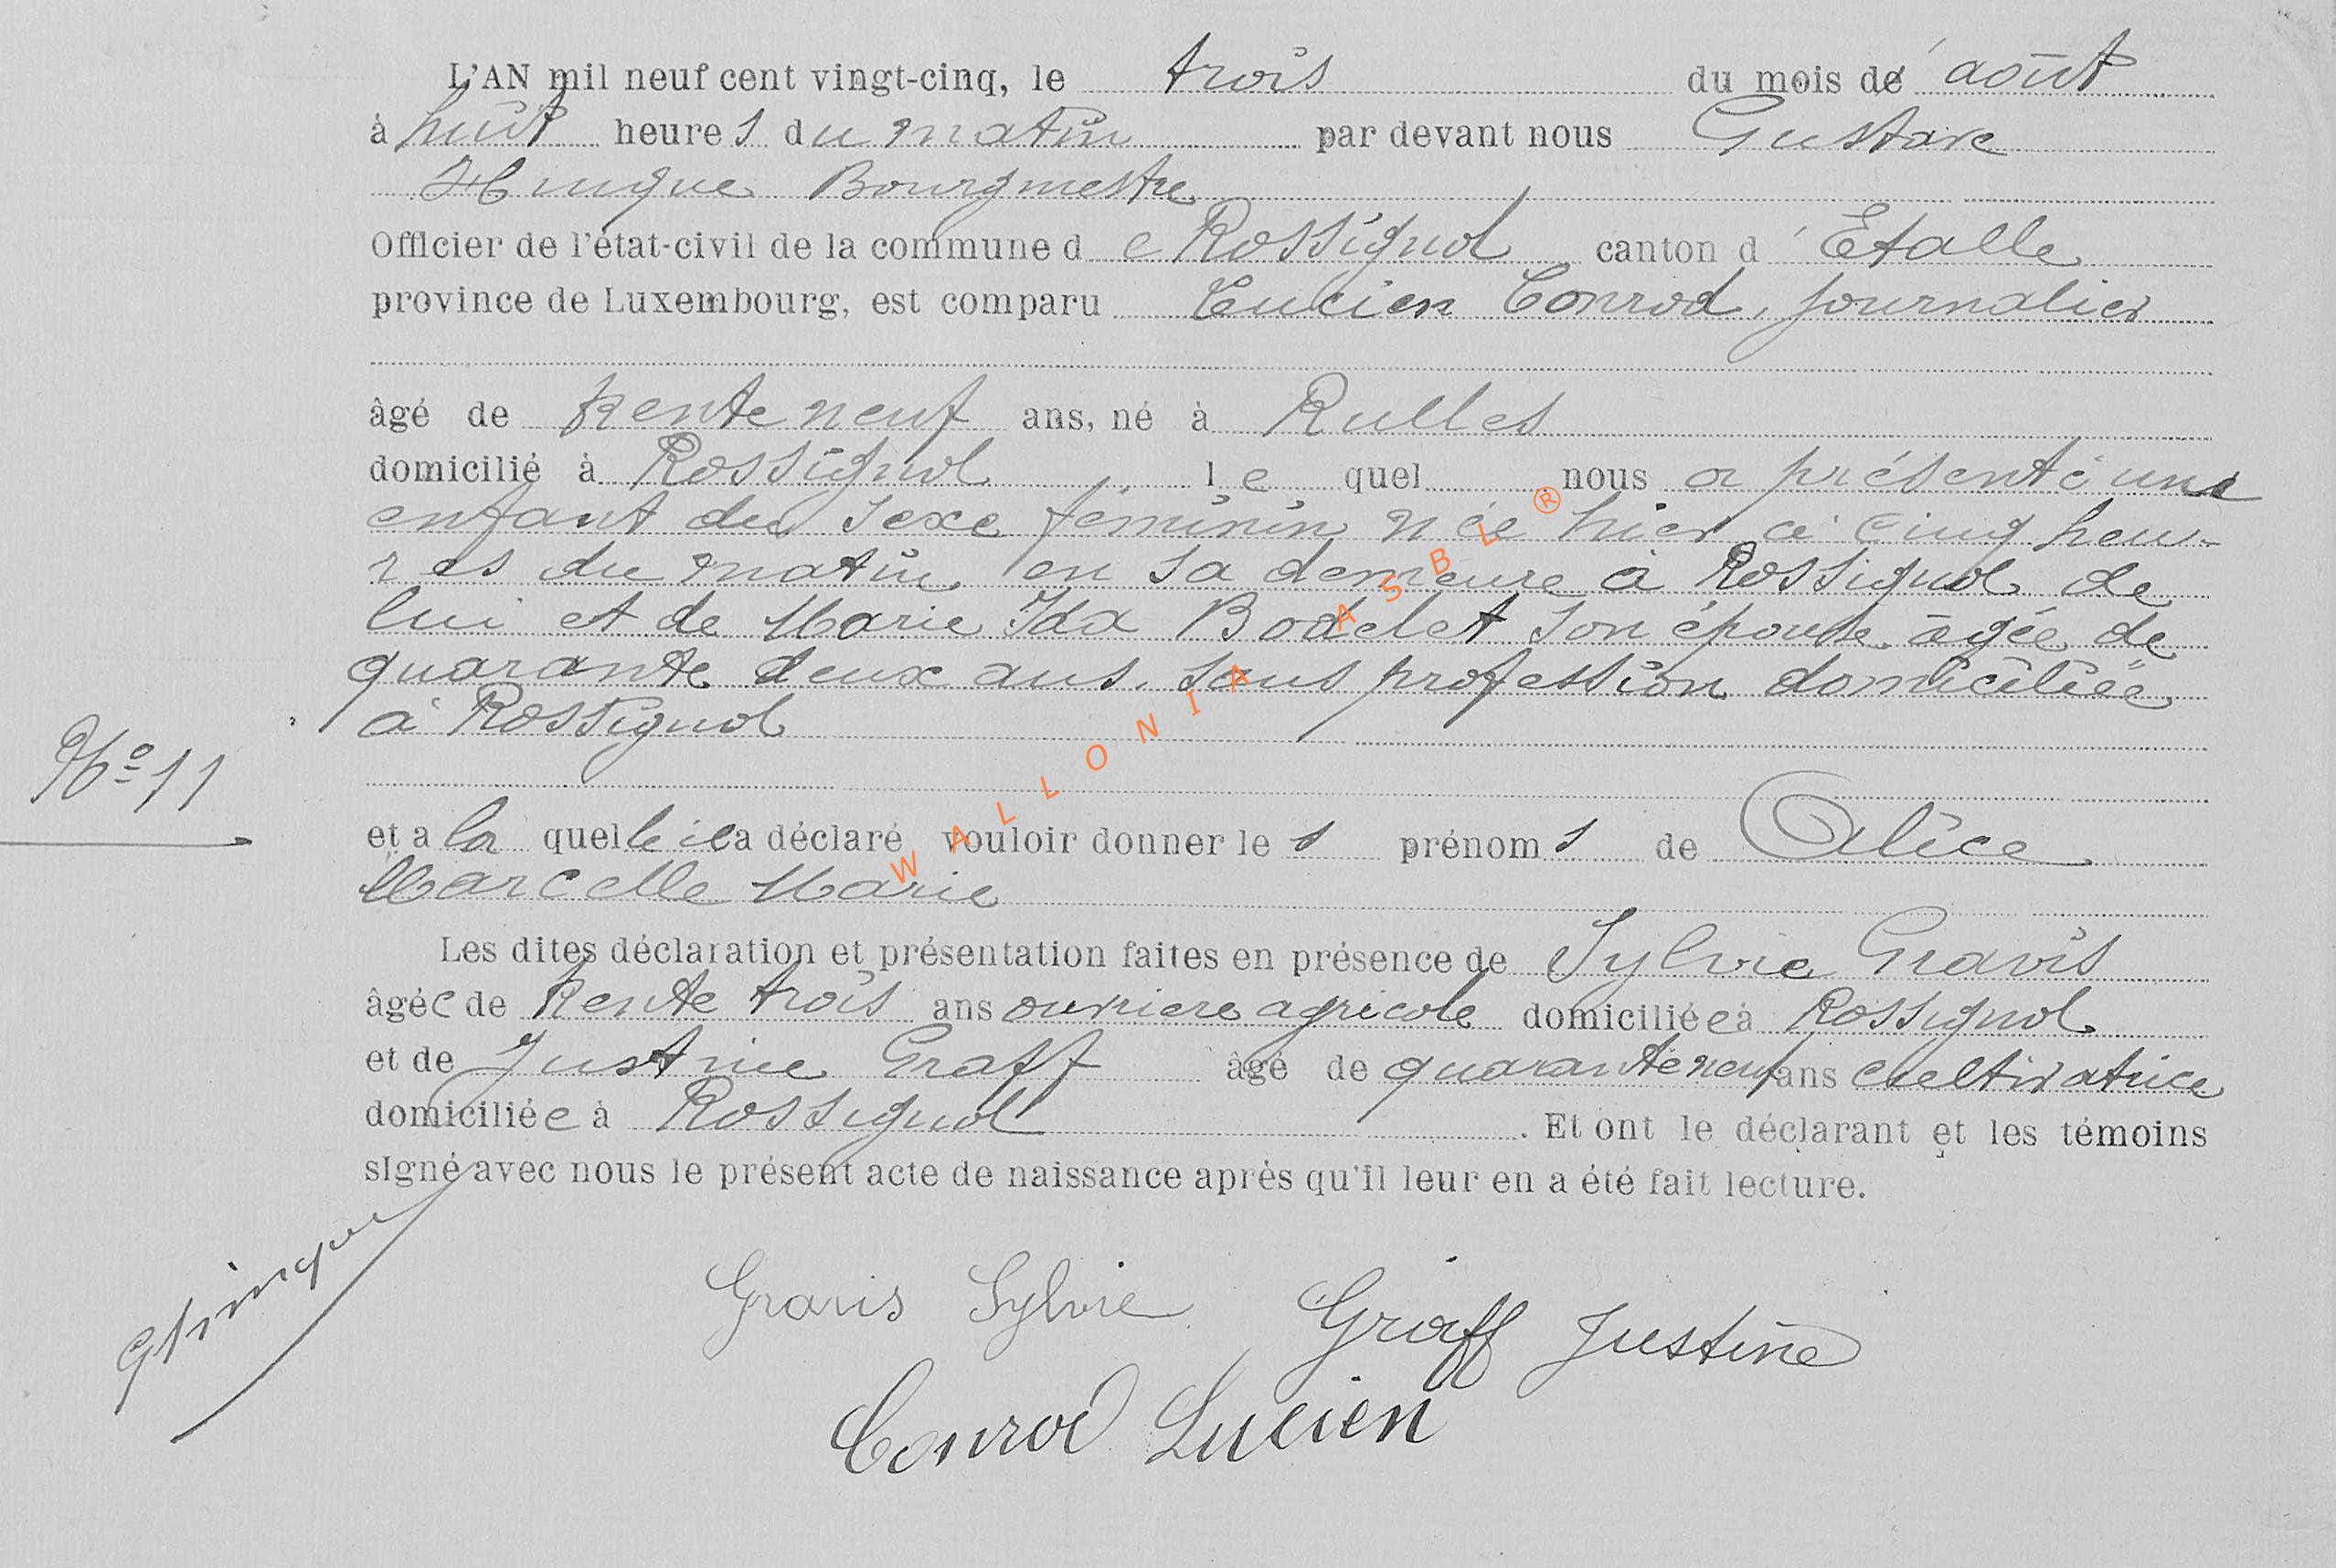 L'AN mil neuf cent vingt-cinq, le trois du mois d'août
à huit heures du matin par devant nous Gustave
Hinque Bourgmestre
Officier de l'état-civil de la commune de Rossignol canton d'Etalle
province de Luxembourg, est comparu Lucien Conrod, journalier
âgé de trente neuf ans, né à Rulles
domicilié à Rossignol, lequel nous a présenté une
enfant du sexe féminin née hier à cinq heu-
res du matin, en sa demeure à Rossignol de
lui et de Marie Ida Bodelet son épouse âgée de
quarante deux ans, sans profession domiciliée
à Rossignol
No 11
et a laquelle il a déclaré vouloir donner les prénoms de Alice
Marcelle Marie
Les dites déclaration et présentation faites en présence de Sylvie Gravis
âgée de trente trois ans ouvriere agricole domiciliée à Rossignol
et de Justine Graff âgé de quarante neuf ans cultivatrice
domiciliée à Rossignol. Et ont le déclarant et les témoins
signé avec nous le présent acte de naissance après qu'il leur en a été fait lecture.
GHinque
Gravis Sylvie Graff Justine
Conrod Lucien
WALLONIA ASBL ®